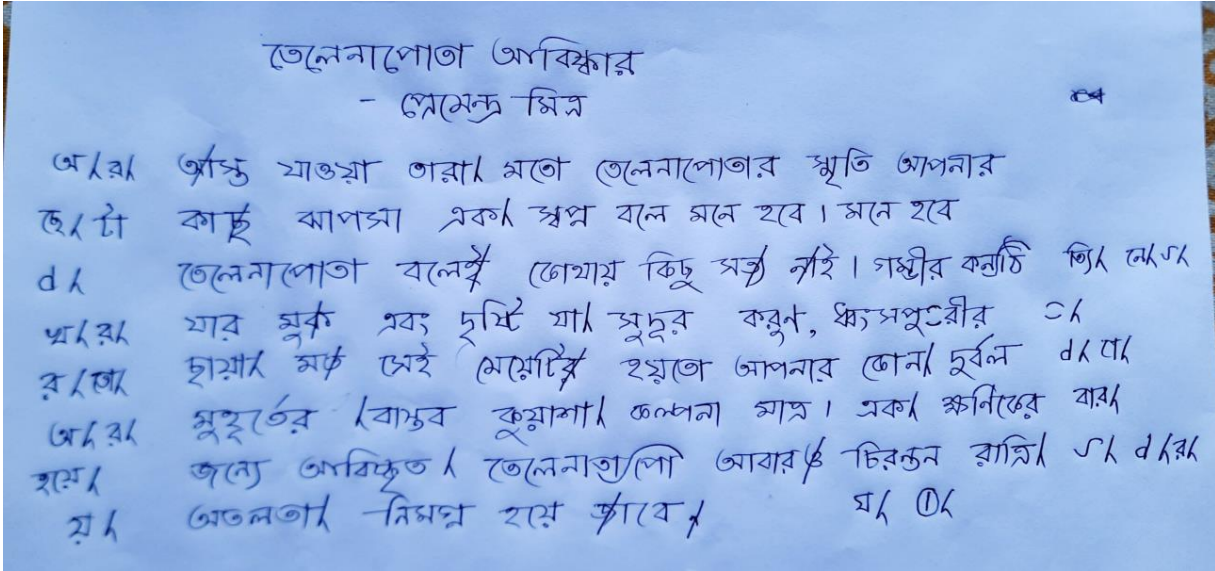 তেলেনাপোতা আবিষ্কার
- প্রেমেন্দ্র মিত্র
অ/র/ আস্ত যাওয়া তারা/ মতো তেলেনাপোতার স্মৃতি আপনার
ছে/টা কাছু ঝাপসা একা/ স্বপ্ন বলে মনে হবে। মনে হবে
d/ তেলেনাপোতা বলেই কোথায় কিছু সত্য নাই। গম্ভীর কন্ঠি
খ/র/ যার মুক এবং দৃষ্টি যা/ সুদূর করুণ, ধ্বংসপুরীর
র/তো/ ছায়া/ মত সেই মেয়েটির হয়তো আপনার কোন/ দুর্বল d/
অ/র/ মুহূর্তের /বাস্তব কুয়াশা/ কল্পনা মাত্র। এক/ ক্ষণিকের বার/
হয়ে/ জন্যে আবিষ্কৃত/ তেলেনাতাপো আবার চিরন্তন রাত্রি/ d/র/
য়/ অতলতা/ নিমগ্ন হয়ে যাবে য/ ①/